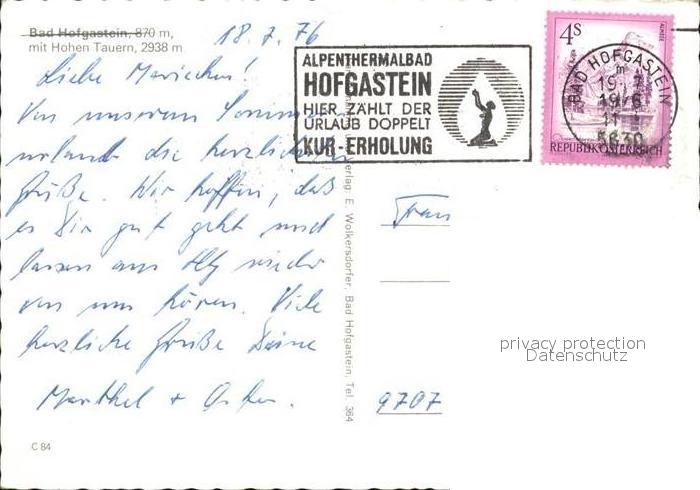 Bad Hofgastein, 870 m,
mit Hohen Tauern, 2938 m
18.7.76
Liebe Mariechen!
Von unserem Sommer
urlaub die herzlichen
Grüße. Wir hoffen, daß
es Dir gut geht und
lassen am wieder
von uns hören. Viele
herzliche Grüße Deine
Marthel +
C 84
ALPENTHERMALBAD
HOFGASTEIN
HIER ZÄHLT DER
URLAUB DOPPELT
KUR-ERHOLUNG
4S
ALMSEE
REPUBLIK ÖSTERREICH
BAD HOFGASTEIN
m
19.7
1976
11
5630
Verlag: E. Wolkersdorfer, Bad Hofgastein, Tel. 364
Frau
privacy protection
Datenschutz
9707